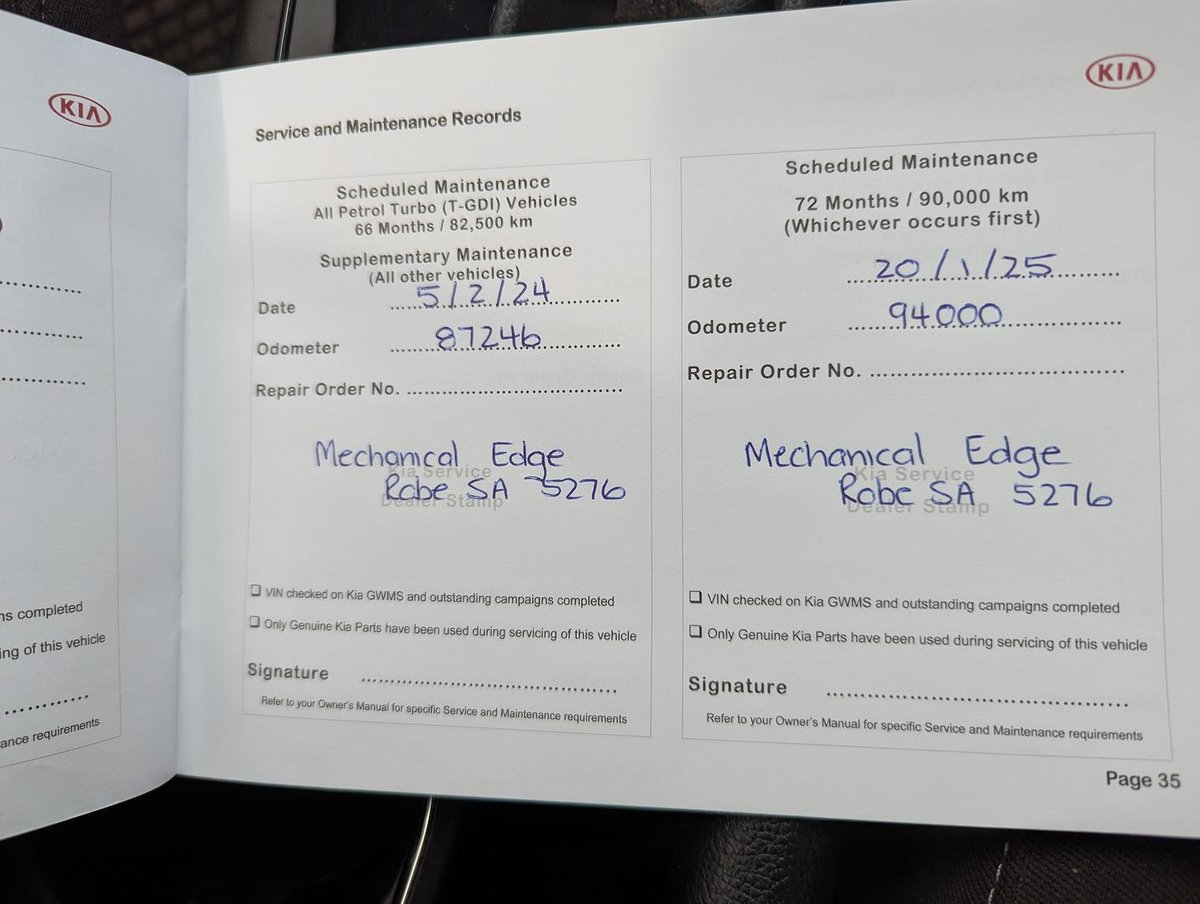 KIA
ns completed
ing of this vehicle
ance requirements
KIA
Service and Maintenance Records
Scheduled Maintenance
All Petrol Turbo (T-GDI) Vehicles
66 Months / 82,500 km
Supplementary Maintenance
(All other vehicles)
Date 5/2/24
Odometer 87246
Repair Order No.
Mechanical Edge
Kia Service
Robe SA 5276
Dealer Stamp
❑ VIN checked on Kia GWMS and outstanding campaigns completed
❑ Only Genuine Kia Parts have been used during servicing of this vehicle
Signature
Refer to your Owner's Manual for specific Service and Maintenance requirements
Scheduled Maintenance
72 Months / 90,000 km
(Whichever occurs first)
Date 20/1/25
Odometer 94000
Repair Order No.
Mechanical Edge
Kia Service
Robe SA 5276
Dealer Stamp
❑ VIN checked on Kia GWMS and outstanding campaigns completed
❑ Only Genuine Kia Parts have been used during servicing of this vehicle
Signature
Refer to your Owner's Manual for specific Service and Maintenance requirements
Page 35